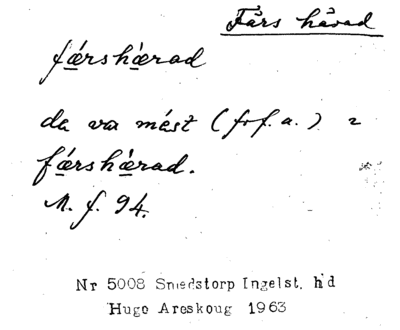 Färs härad
fǽrshǽrad
da va mést (frf. a.) 2
fǽrshǽrad.
M. f. 94.
Nr 5008 Smedstorp Ingelst. h'd
Hugo Areskoug 1963